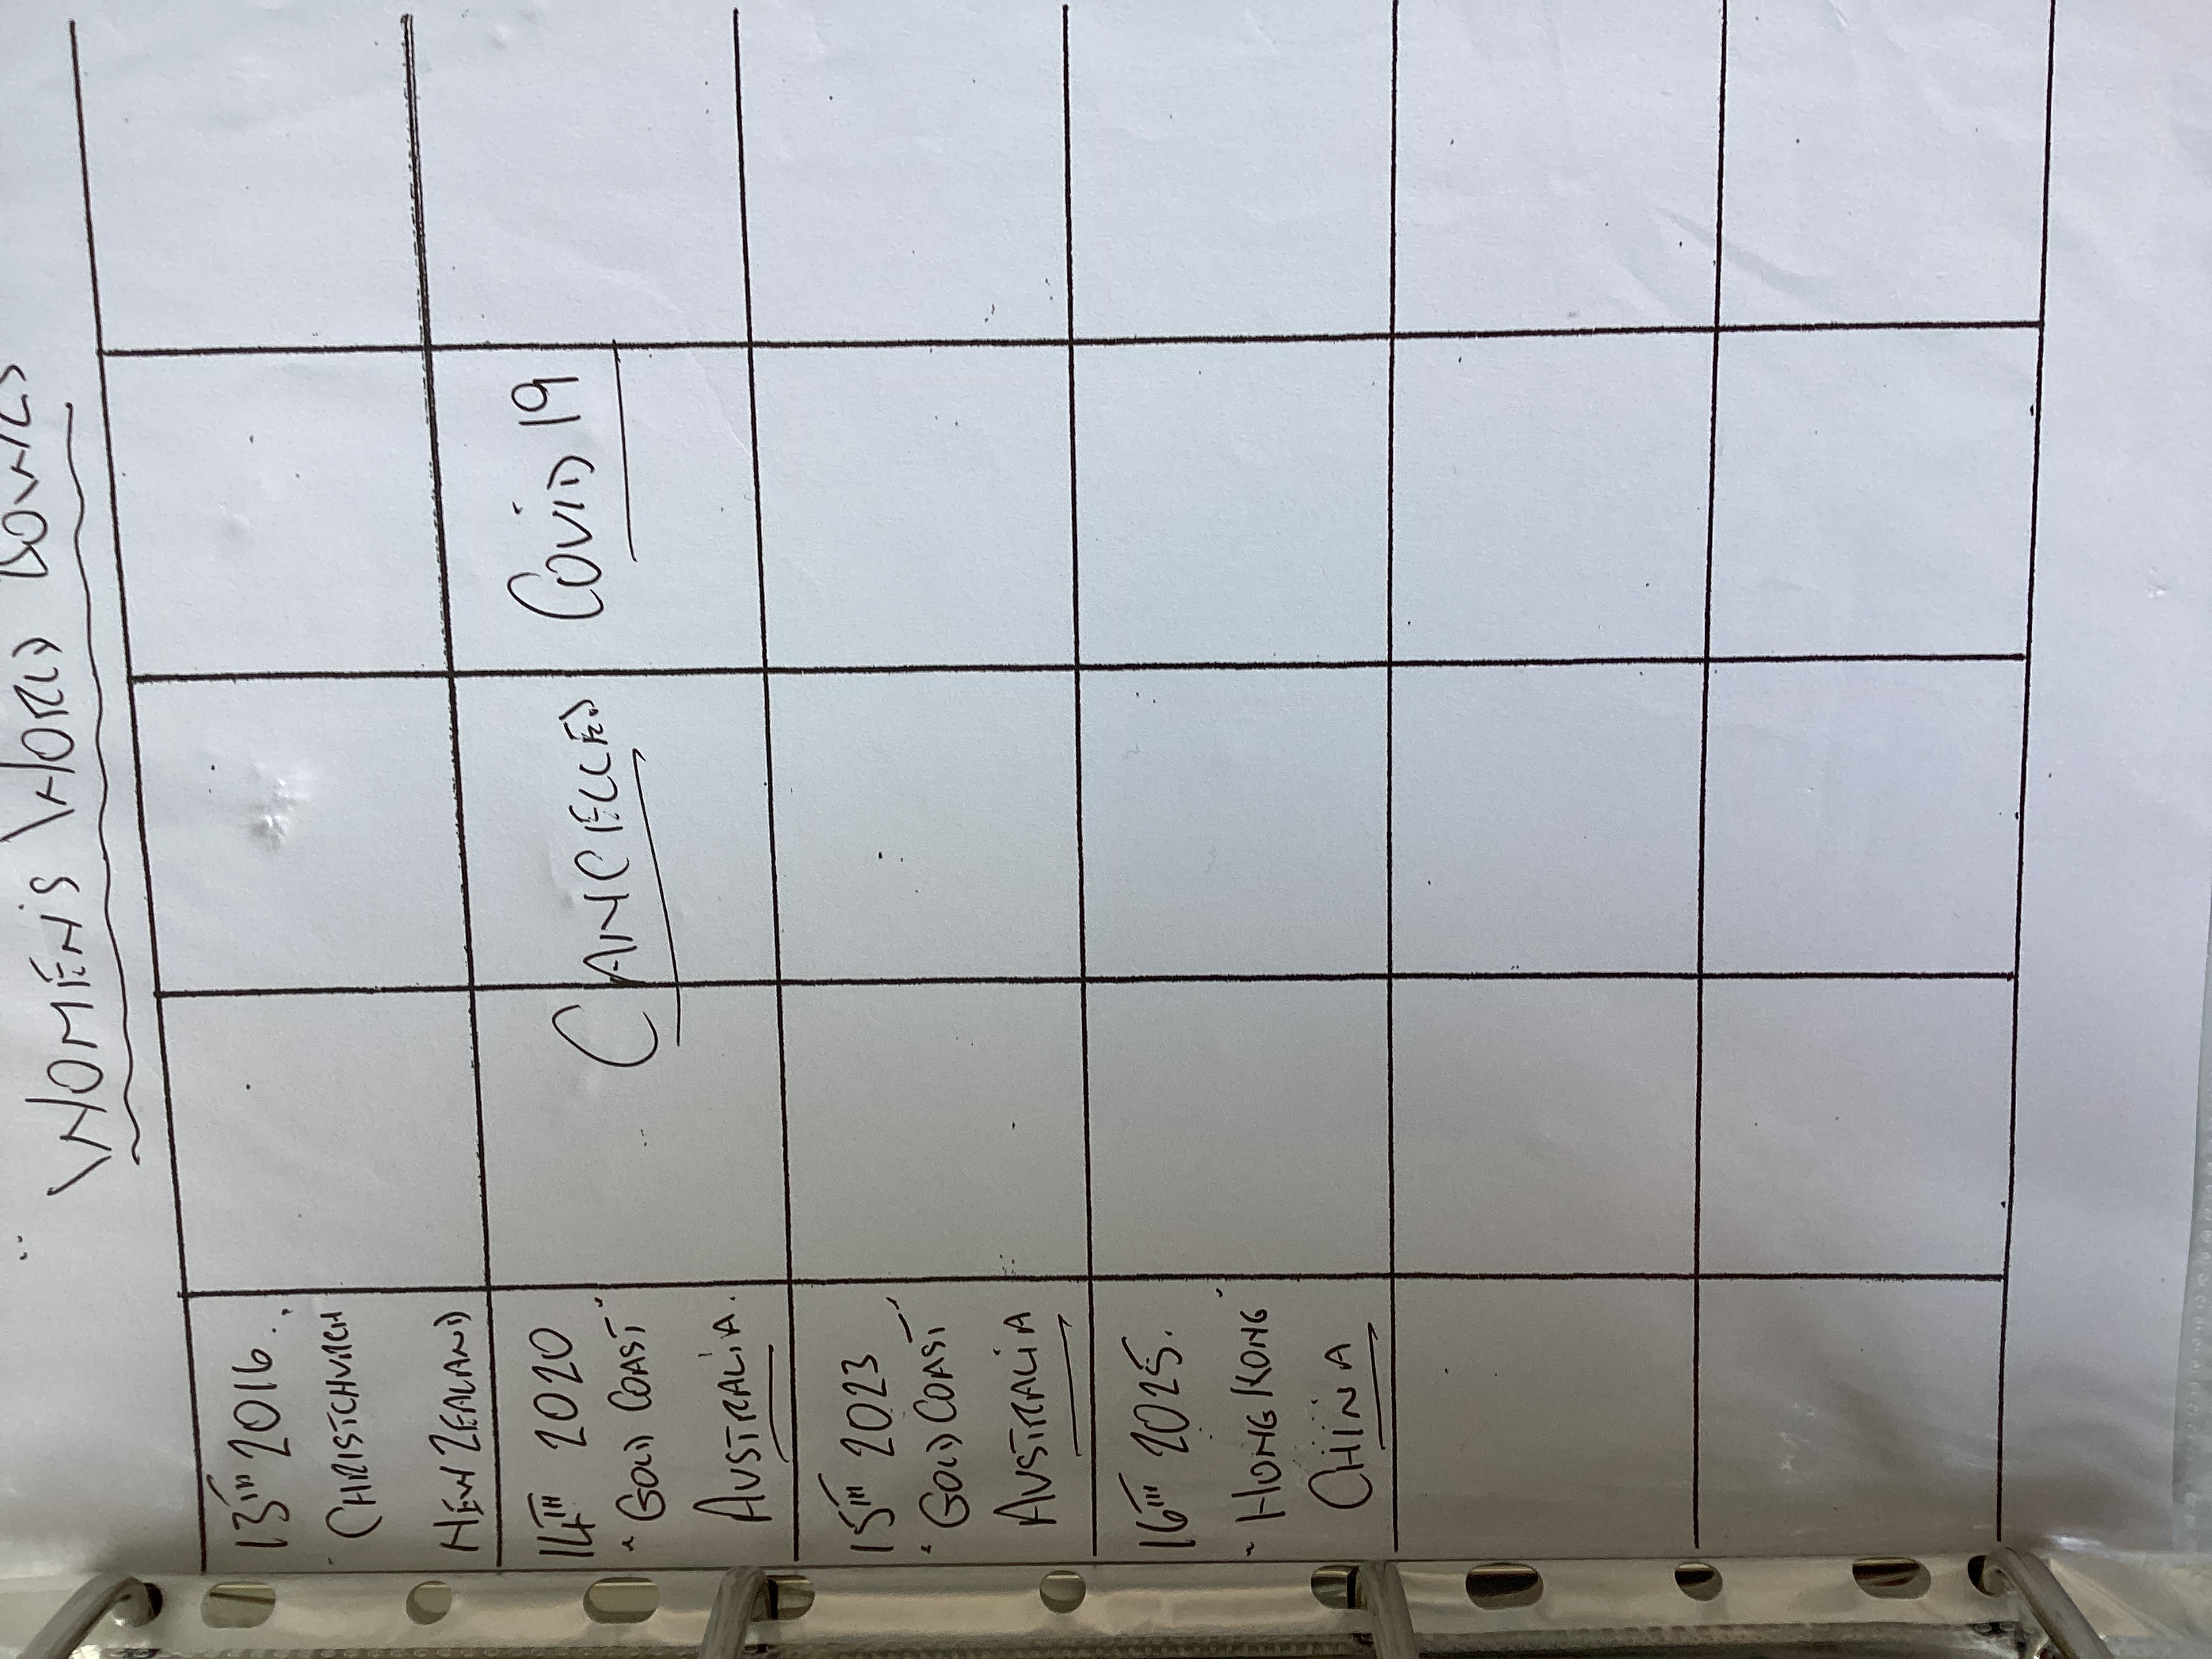 WOMEN'S WORLD BOWLS
13TH 2016.
CHRISTCHURCH
NEW ZEALAND
14TH 2020
GOLD COAST
AUSTRALIA.
CANCELLED COVID 19
15TH 2023
GOLD COAST
AUSTRALIA
16TH 2025.
HONG KONG
CHINA